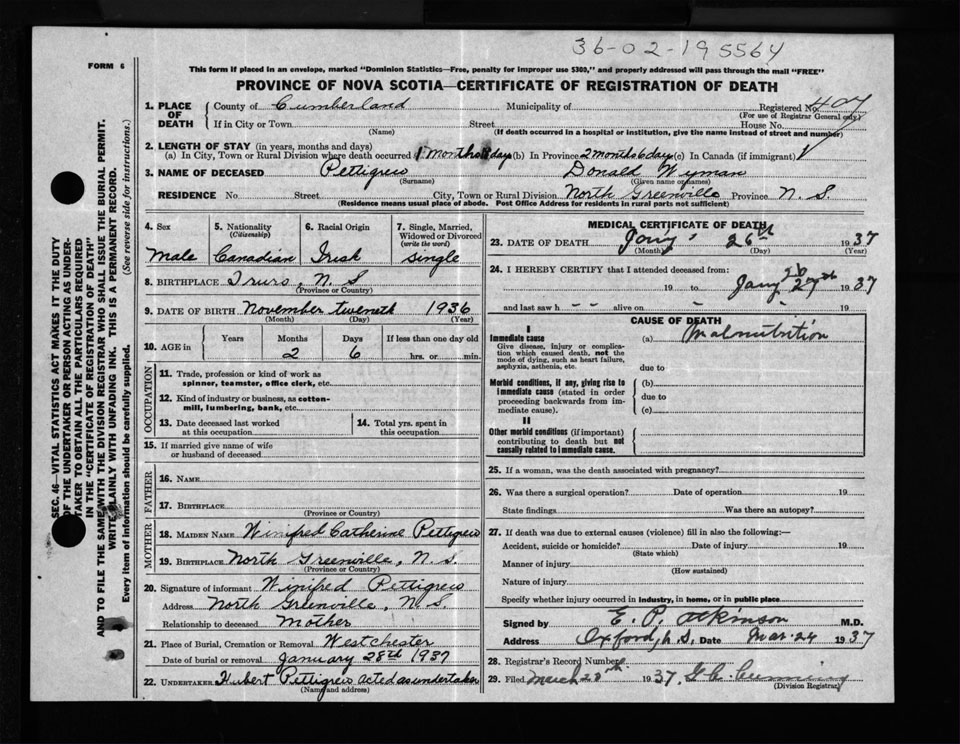 36-02-195564
FORM 6
This form if placed in an envelope, marked "Dominion Statistics—Free, penalty for improper use $300," and properly addressed will pass through the mail "FREE"
PROVINCE OF NOVA SCOTIA—CERTIFICATE OF REGISTRATION OF DEATH
SEC. 46—VITAL STATISTICS ACT MAKES IT THE DUTY
OF THE UNDERTAKER OR PERSON ACTING AS UNDER-
TAKER TO OBTAIN ALL THE PARTICULARS REQUIRED
IN THE "CERTIFICATE OF REGISTRATION OF DEATH"
AND TO FILE THE SAME WITH THE DIVISION REGISTRAR WHO SHALL ISSUE THE BURIAL PERMIT.
WRITE PLAINLY WITH UNFADING INK. THIS IS A PERMANENT RECORD.
Every item of information should be carefully supplied. (See reverse side for instructions.)
1. PLACE OF DEATH
County of Cumberland Municipality of Registered No. 407
(For use of Registrar General only)
If in City or Town Street House No.
(Name) (If death occurred in a hospital or institution, give the name instead of street and number)
2. LENGTH OF STAY (in years, months and days)
(a) In City, Town or Rural Division where death occurred 1 months day (b) In Province 2 months 6 days (c) In Canada (if immigrant)
3. NAME OF DECEASED Pettigrew Donald Wyman
(Surname) (Given name or names)
RESIDENCE No. Street City, Town or Rural Division North Greenville Province N. S.
(Residence means usual place of abode. Post Office Address for residents in rural parts not sufficient)
4. Sex 5. Nationality (Citizenship) 6. Racial Origin 7. Single, Married, Widowed or Divorced (write the word)
Male Canadian Irish Single
8. BIRTHPLACE Truro, N. S
(Province or Country)
9. DATE OF BIRTH November twentieth 1936
(Month) (Day) (Year)
10. AGE in Years Months Days If less than one day old
2 6 hrs. or min.
OCCUPATION
11. Trade, profession or kind of work as spinner, teamster, office clerk, etc.
12. Kind of industry or business, as cotton-mill, lumbering, bank, etc.
13. Date deceased last worked at this occupation 14. Total yrs. spent in this occupation
15. If married give name of wife or husband of deceased
FATHER
16. NAME
17. BIRTHPLACE
(Province or Country)
MOTHER
18. MAIDEN NAME Winifred Catherine Pettigrew
19. BIRTHPLACE North Greenville, N. S.
(Province or Country)
20. Signature of informant Winifred Pettigrew
Address North Greenville, N. S.
Relationship to deceased Mother
21. Place of Burial, Cremation or Removal Westchester
Date of burial or removal January 28th 1937
22. UNDERTAKER Hubert Pettigrew acted as undertaker
(Name and address)
MEDICAL CERTIFICATE OF DEATH
23. DATE OF DEATH Jany 26th 1937
(Month) (Day) (Year)
24. I HEREBY CERTIFY that I attended deceased from:
19 to Jany 26 27th 1937
and last saw h alive on 19
CAUSE OF DEATH
I
Immediate cause (a) Malnutrition
Give disease, injury or complication which caused death, not the mode of dying, such as heart failure, asphyxia, asthenia, etc.
due to
Morbid conditions, if any, giving rise to immediate cause (stated in order proceeding backwards from immediate cause).
(b)
due to
(c)
II
Other morbid conditions (if important) contributing to death but not causally related to immediate cause.
25. If a woman, was the death associated with pregnancy?
26. Was there a surgical operation? Date of operation 19
State findings Was there an autopsy?
27. If death was due to external causes (violence) fill in also the following:—
Accident, suicide or homicide? Date of injury 19
(State which)
Manner of injury
(How sustained)
Nature of injury
Specify whether injury occurred in industry, in home, or in public place
Signed by E. P. Atkinson M.D.
Address Oxford, N.S. Date Mar 24 1937
28. Registrar's Record Number
29. Filed March 28th 1937
(Division Registrar)